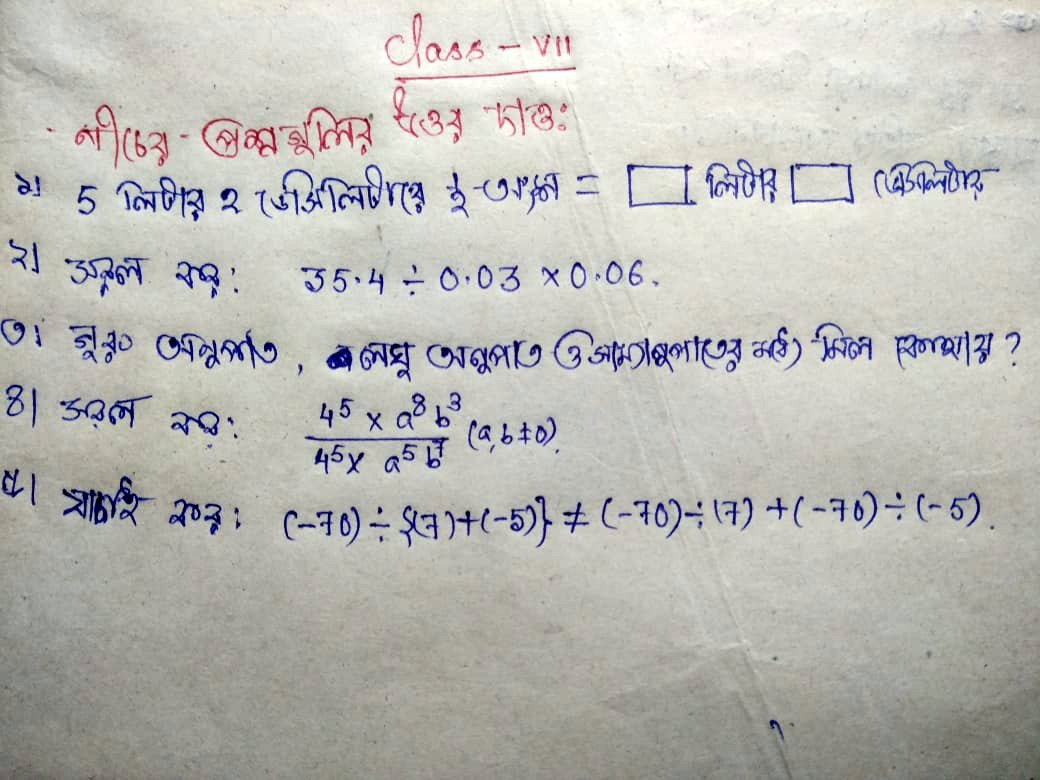 Class - VII
নীচের প্রশ্নগুলির উত্তর দাও:
১। 5 লিটার ২ ডেসিলিটারের অংশ = লিটার ডেসিলিটার
২। সরল কর: 35.4 ÷ 0.03 × 0.06.
৩। গুরু অনুপাত, লঘু অনুপাত ও সাম্যানুপাতের মধ্যে মিল কোথায়?
৪। সরল কর: 4⁵ × a⁸ b³ / 4⁵ × a⁵ b (a, b ≠ 0).
৫। যাচাই কর: (-70) ÷ {(7)+(-5)} ≠ (-70) ÷ (7) + (-70) ÷ (-5).